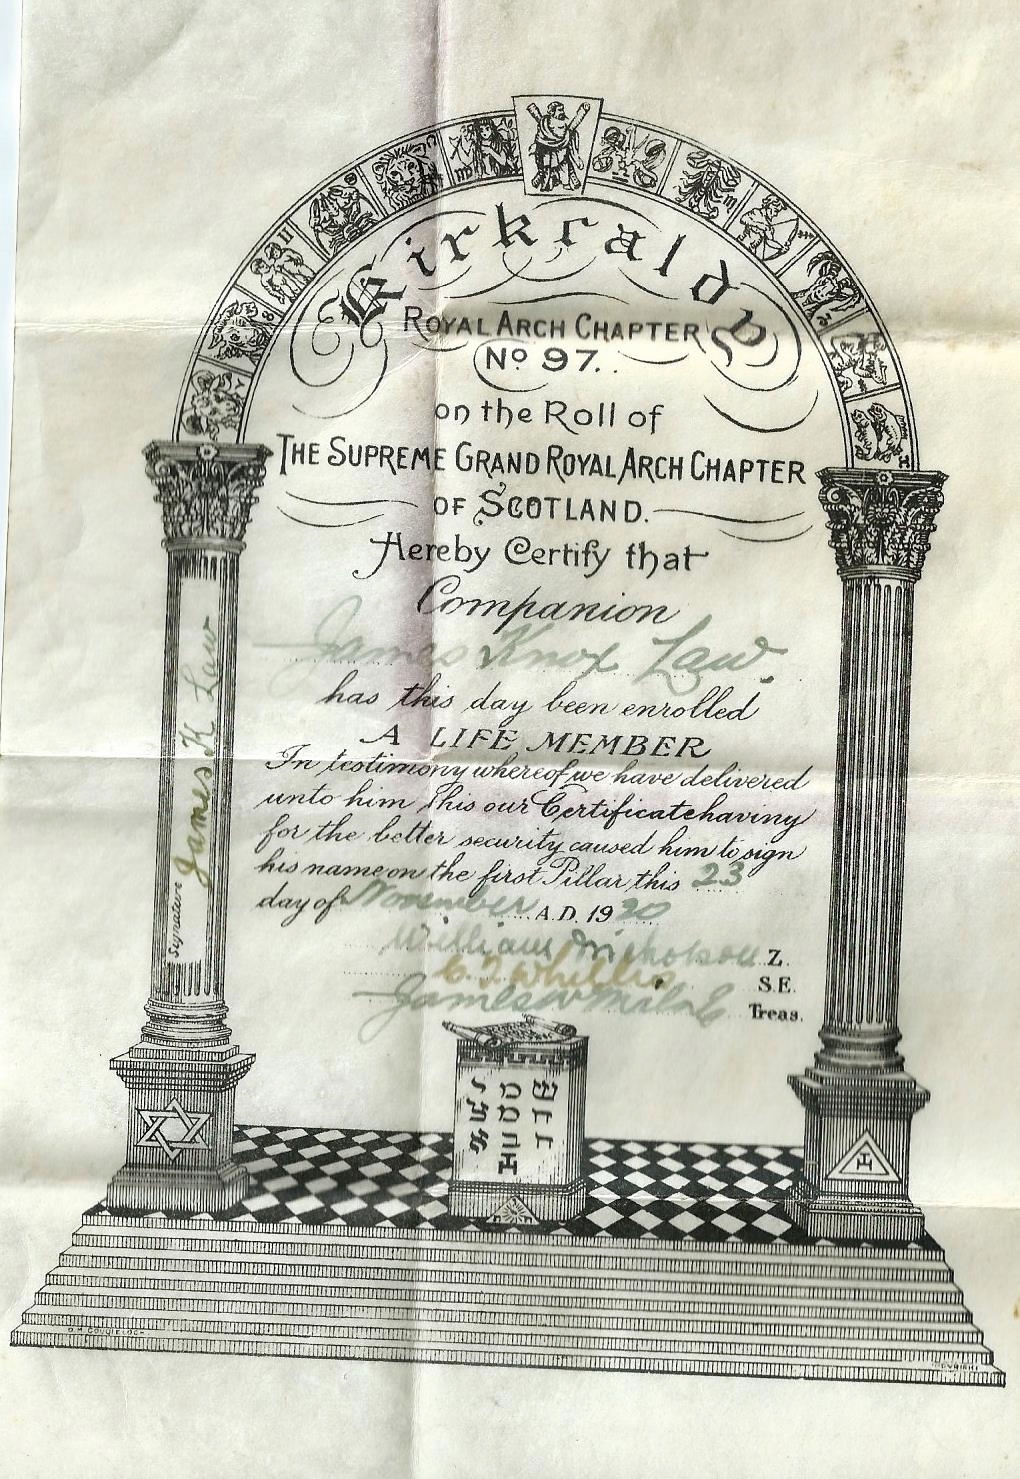 Kirkcaldy
ROYAL ARCH CHAPTER
No 97.
on the Roll of
THE SUPREME GRAND ROYAL ARCH CHAPTER
OF SCOTLAND.
Hereby Certify that
Companion
James Knox Law.
has this day been enrolled
A LIFE MEMBER
In testimony whereof we have delivered
unto him this our Certificate having
for the better security caused him to sign
his name on the first Pillar this 23
day of November A.D. 1920
William Nicholson Z.
Whellis S.E.
James W Milne Treas.
Signature James K Law